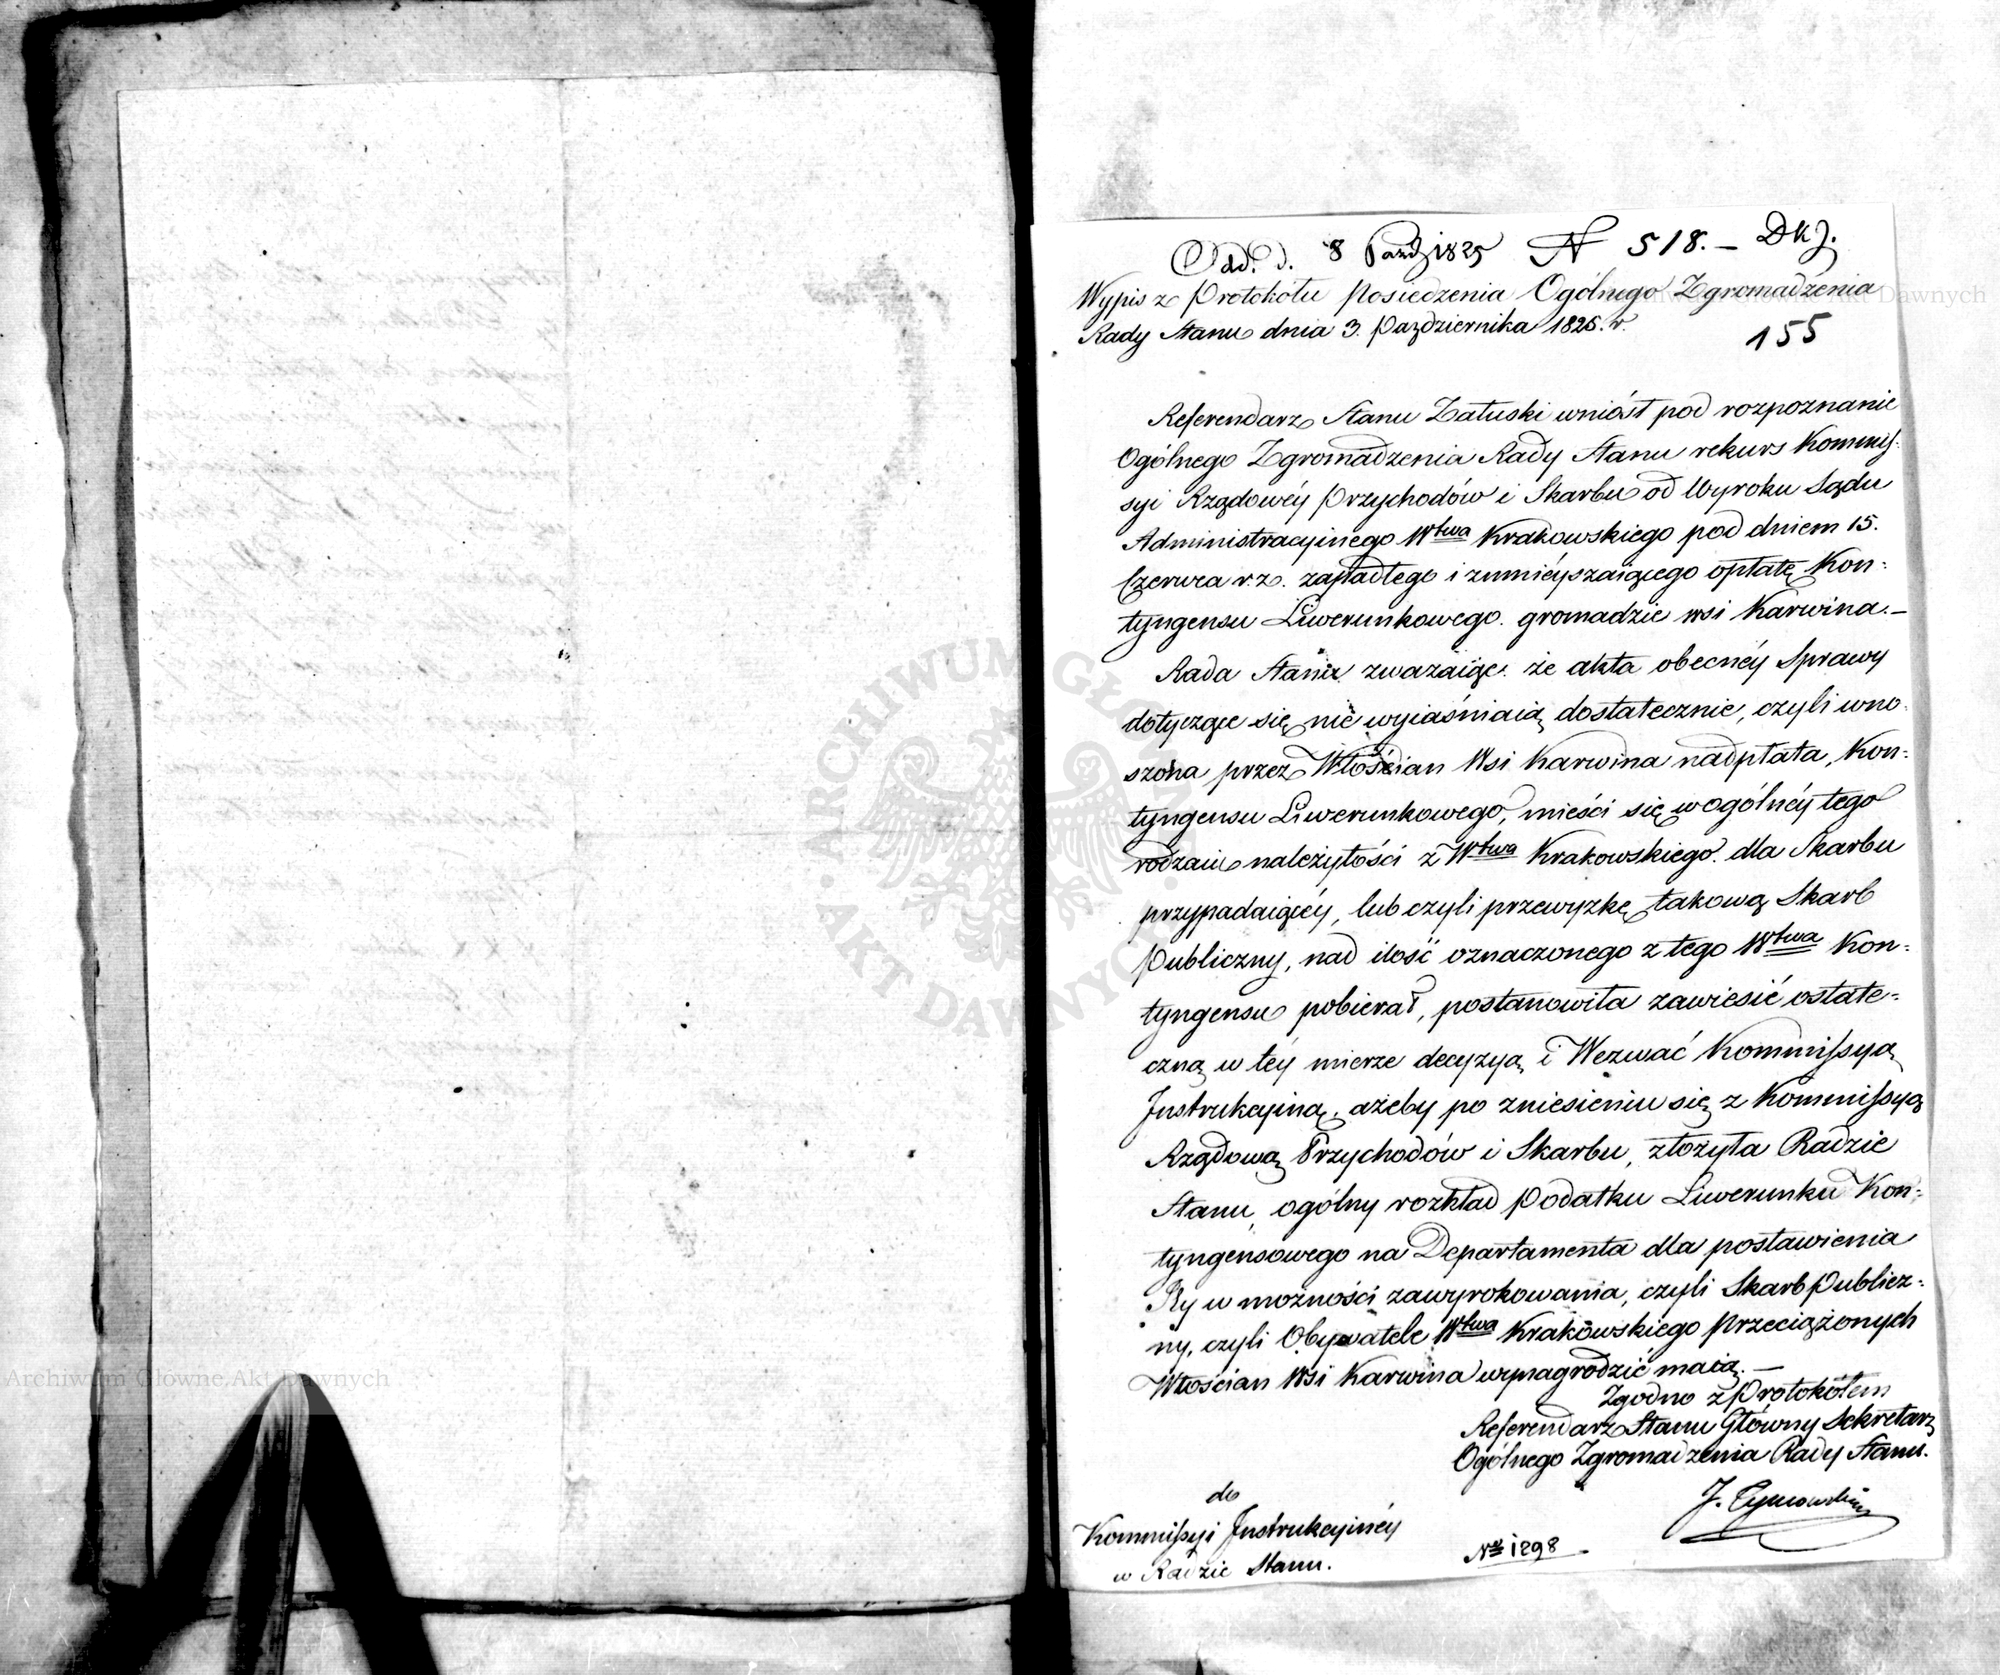 Odd. d. 8 Paźdz 1825 N 518. – DKJ.
Wypis z Protokołu Posiedzenia Ogólnego Zgromadzenia
Rady Stanu dnia 3. Października 1825. r.
155
Referendarz Stanu Załuski wniósł pod rozpoznanie
Ogólnego Zgromadzenia Rady Stanu rekurs Kommis-
syi Rządowéy Przychodów i Skarbu od Wyroku Sądu
Administracyinego Wtwa Krakowskiego pod dniem 15.
Czerwca r. z. zapadłego i zmnieyszaiącego opłatę Kon-
tyngensu Liwerunkowego gromadzie wsi Karwina. –
Rada Stanu zważaiąc że akta obecnéy Sprawy
dotyczące się nie wyiaśniaią dostatecznie, czyli wno-
szona przez Włościan Wsi Karwina nadpłata, Kon-
tyngensu Liwerunkowego, mieści się w ogólnéy tego
rodzaiu należytości z Wtwa Krakowskiego dla Skarbu
przypadaiącéy, lub czyli przewyzkę takową Skarb
Publiczny, nad ilość oznaczonego z tego Wtwa Kon-
tyngensu pobierał, postanowiła zawiesić ostate-
czną w téy mierze decyzyą i Wezwać Kommissyą
Instrukcyiną, ażeby po zniesieniu się z Kommissyą
Rządową Przychodów i Skarbu, złożyła Radzie
Stanu, ogólny rozkład Podatku Liwerunku Kon-
tyngensowego na Departamenta dla postawienia
Jéy w możności zawyrokowania, czyli Skarb Publicz-
ny, czyli Obywatele Wtwa Krakowskiego przeciążonych
Włościan Wsi Karwina wynagrodzić maią. –
Zgodno z Protokółem
Referendarz Stanu Główny Sekretarz
Ogólnego Zgromadzenia Rady Stanu.
J. Tymowski
do
Kommissyi Instrukcyinéy
w Radzie Stanu.
Nro 1298
Archiwum Główne Akt Dawnych
ARCHIWUM GŁÓWNE · AKT DAWNYCH ·